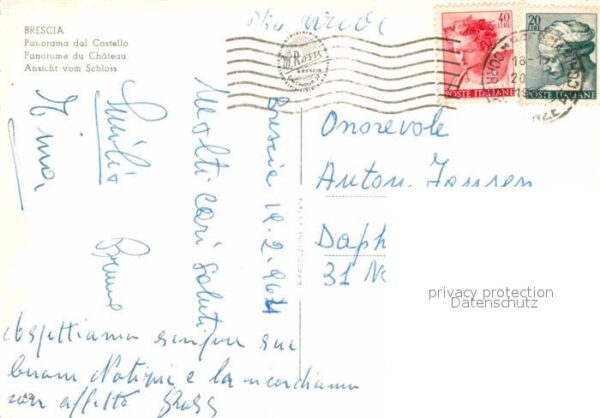 BRESCIA
Panorama dal Castello
Panorame du Château
Ansicht vom Schloss
Via aerea
40
LIRE
POSTE ITALIANE
20
LIRE
POSTE ITALIANE
BRESCIA
Brescia 18.2.964
Molti cari saluti
Emilio
Bruna
Onorevole
Anton Janssen
Daph
31 N
aspettiamo sempre sue
buone Notizie e la ricordiamo
con affetto
privacy protection
Datenschutz